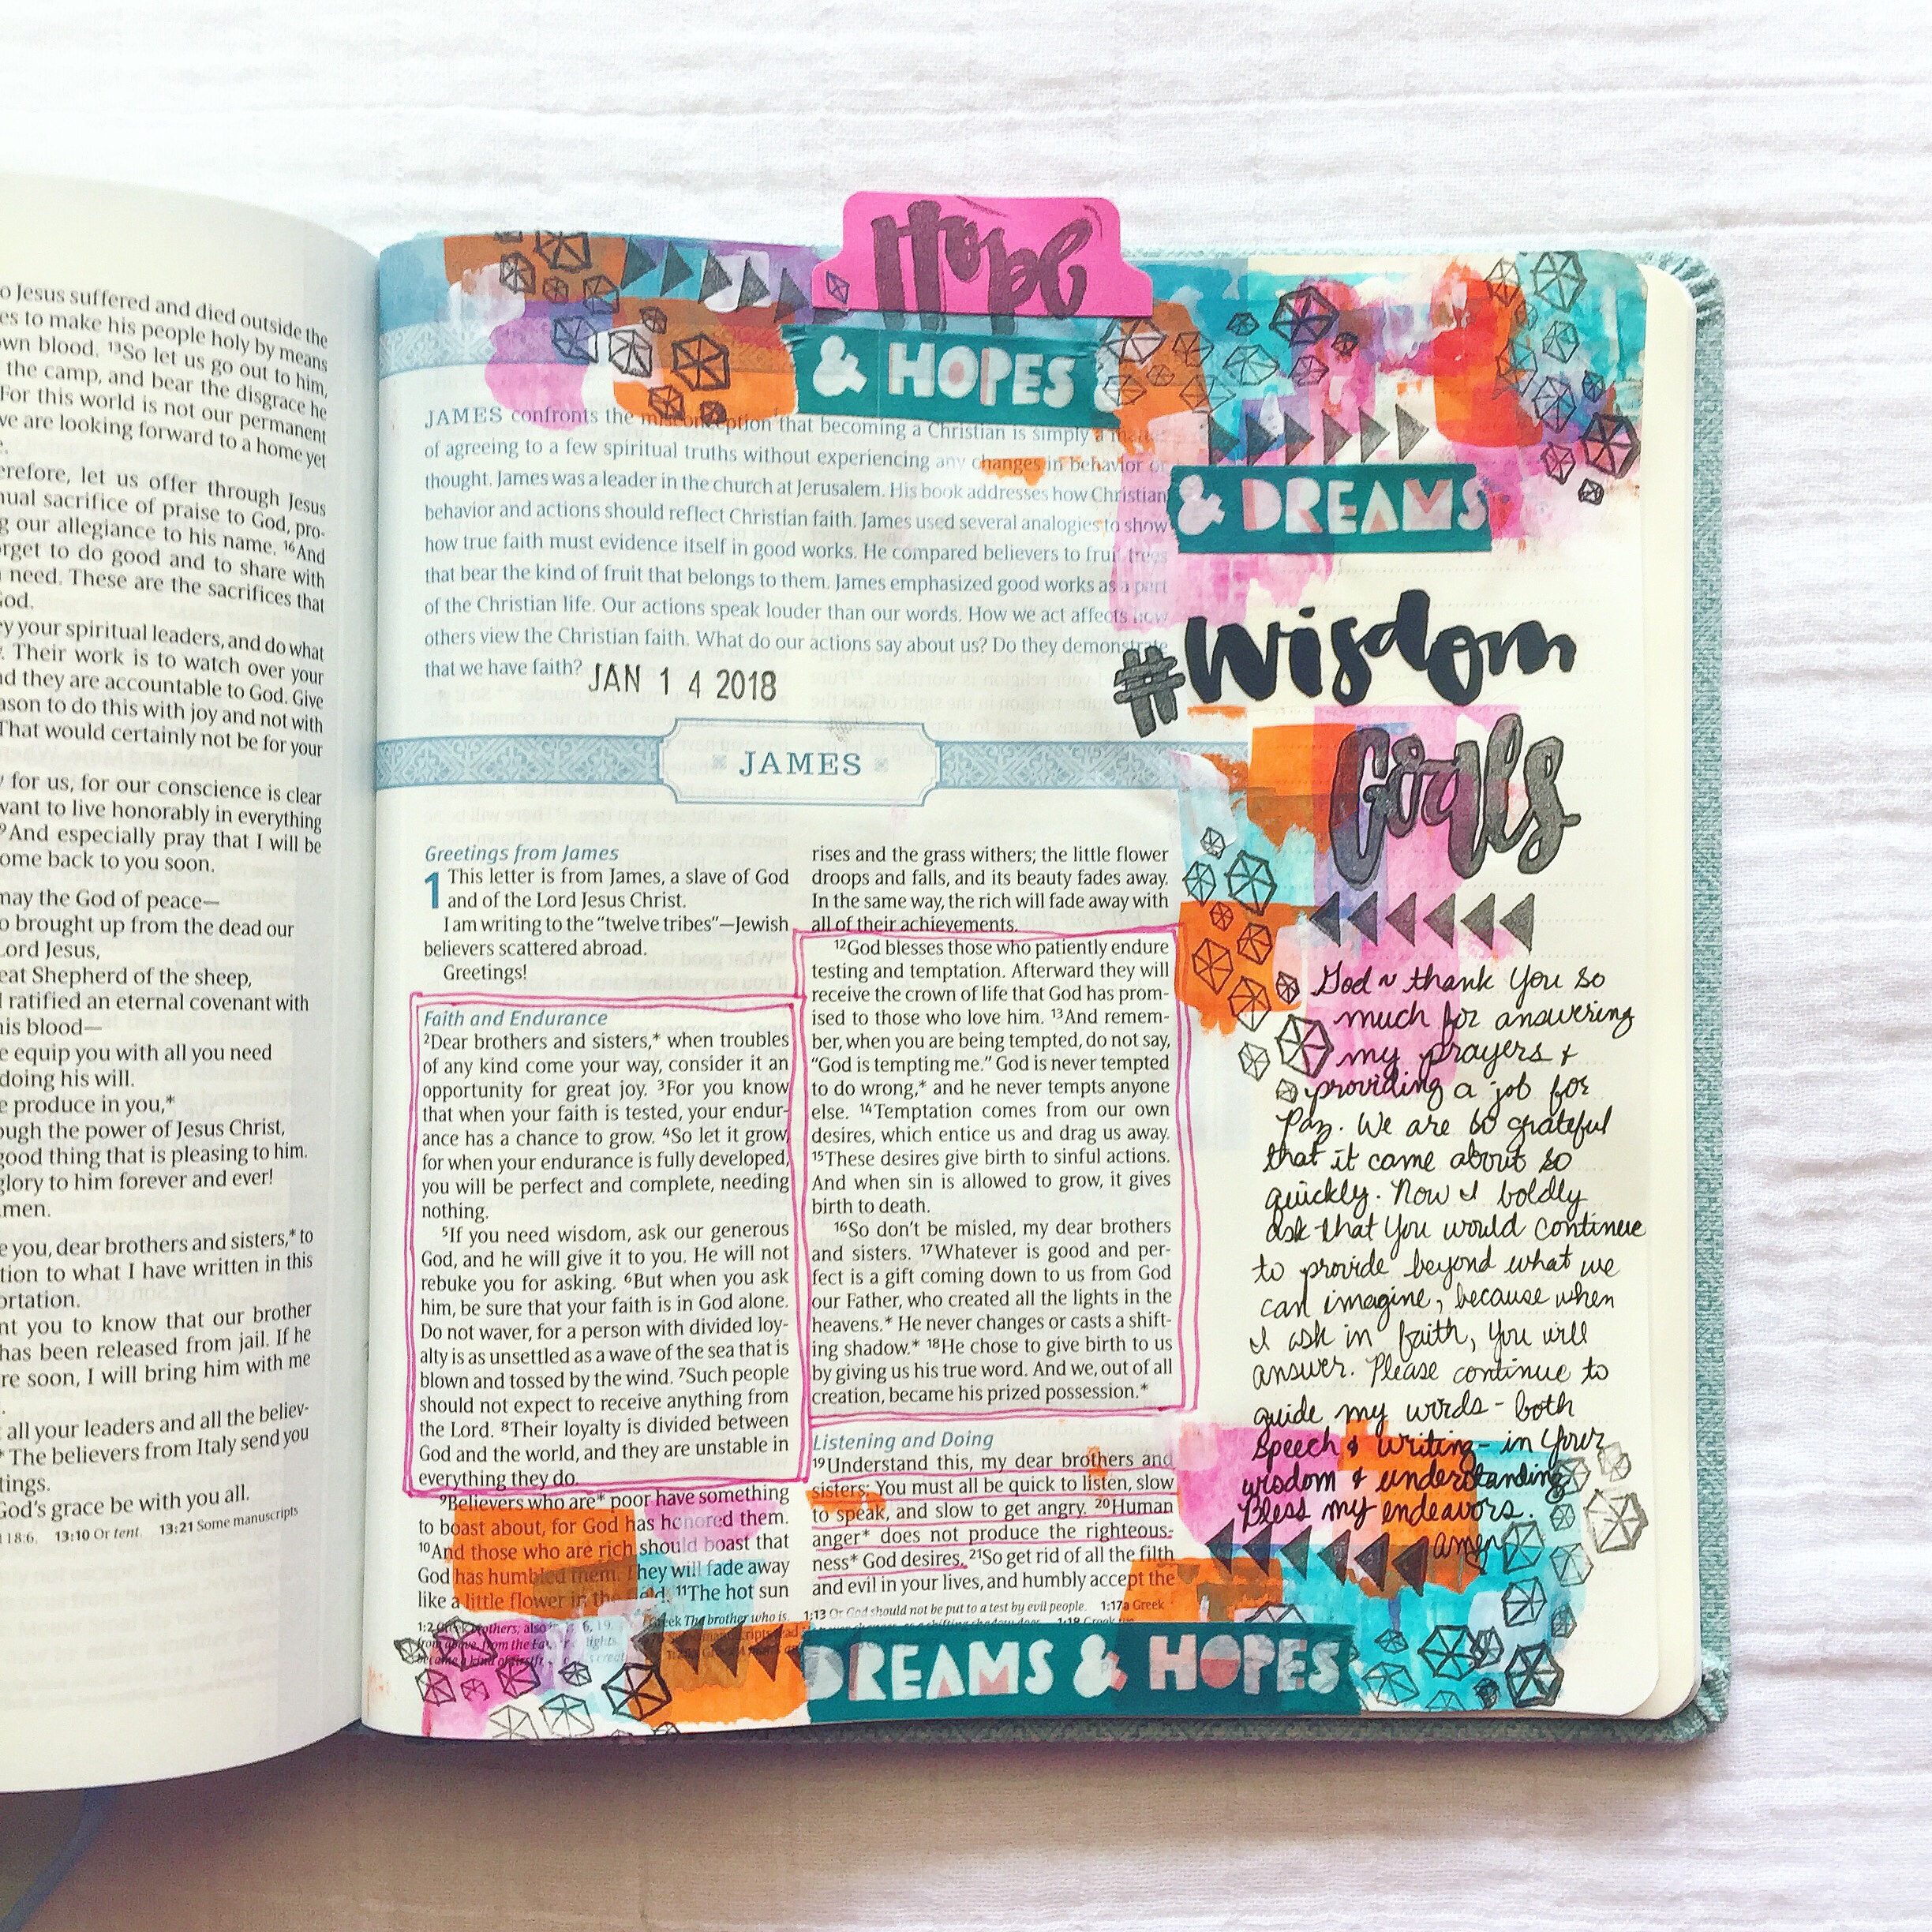 o Jesus suffered and died outside the
es to make his people holy by means
wn blood. 13So let us go out to him,
the camp, and bear the disgrace he
For this world is not our permanent
ve are looking forward to a home yet
e.
erefore, let us offer through Jesus
nual sacrifice of praise to God, pro-
g our allegiance to his name. 16And
rget to do good and to share with
need. These are the sacrifices that
God.
ey your spiritual leaders, and do what
. Their work is to watch over your
nd they are accountable to God. Give
ason to do this with joy and not with
That would certainly not be for your
y for us, for our conscience is clear
vant to live honorably in everything
9And especially pray that I will be
ome back to you soon.
may the God of peace—
o brought up from the dead our
Lord Jesus,
eat Shepherd of the sheep,
l ratified an eternal covenant with
his blood—
e equip you with all you need
doing his will.
e produce in you,*
ough the power of Jesus Christ,
good thing that is pleasing to him.
glory to him forever and ever!
men.
e you, dear brothers and sisters,* to
tion to what I have written in this
ortation.
nt you to know that our brother
has been released from jail. If he
re soon, I will bring him with me
.
t all your leaders and all the believ-
* The believers from Italy send you
tings.
God's grace be with you all.
18:6. 13:10 Or tent. 13:21 Some manuscripts
Hope
& HOPES
JAMES confronts the misconception that becoming a Christian is simply a matter
of agreeing to a few spiritual truths without experiencing any changes in behavior or
thought. James was a leader in the church at Jerusalem. His book addresses how Christian
behavior and actions should reflect Christian faith. James used several analogies to show
how true faith must evidence itself in good works. He compared believers to fruit trees
that bear the kind of fruit that belongs to them. James emphasized good works as a part
of the Christian life. Our actions speak louder than our words. How we act affects how
others view the Christian faith. What do our actions say about us? Do they demonstrate
that we have faith?
JAN 14 2018
JAMES
Greetings from James
1 This letter is from James, a slave of God
and of the Lord Jesus Christ.
I am writing to the "twelve tribes"—Jewish
believers scattered abroad.
Greetings!
Faith and Endurance
2Dear brothers and sisters,* when troubles
of any kind come your way, consider it an
opportunity for great joy. 3For you know
that when your faith is tested, your endur-
ance has a chance to grow. 4So let it grow,
for when your endurance is fully developed,
you will be perfect and complete, needing
nothing.
5If you need wisdom, ask our generous
God, and he will give it to you. He will not
rebuke you for asking. 6But when you ask
him, be sure that your faith is in God alone.
Do not waver, for a person with divided loy-
alty is as unsettled as a wave of the sea that is
blown and tossed by the wind. 7Such people
should not expect to receive anything from
the Lord. 8Their loyalty is divided between
God and the world, and they are unstable in
everything they do.
9Believers who are* poor have something
to boast about, for God has honored them.
10And those who are rich should boast that
God has humbled them. They will fade away
like a little flower in the field. 11The hot sun
rises and the grass withers; the little flower
droops and falls, and its beauty fades away.
In the same way, the rich will fade away with
all of their achievements.
12God blesses those who patiently endure
testing and temptation. Afterward they will
receive the crown of life that God has prom-
ised to those who love him. 13And remem-
ber, when you are being tempted, do not say,
"God is tempting me." God is never tempted
to do wrong,* and he never tempts anyone
else. 14Temptation comes from our own
desires, which entice us and drag us away.
15These desires give birth to sinful actions.
And when sin is allowed to grow, it gives
birth to death.
16So don't be misled, my dear brothers
and sisters. 17Whatever is good and per-
fect is a gift coming down to us from God
our Father, who created all the lights in the
heavens.* He never changes or casts a shift-
ing shadow.* 18He chose to give birth to us
by giving us his true word. And we, out of all
creation, became his prized possession.*
Listening and Doing
19Understand this, my dear brothers and
sisters: You must all be quick to listen, slow
to speak, and slow to get angry. 20Human
anger* does not produce the righteous-
ness* God desires. 21So get rid of all the filth
and evil in your lives, and humbly accept the
Greek The brother who is. 1:13 Or God should not be put to a test by evil people. 1:17a Greek
& DREAMS
#Wisdom
Goals
God ~ thank You so
much for answering
my prayers +
providing a job for
Paz. We are so grateful
that it came about so
quickly. Now I boldly
ask that You would continue
to provide beyond what we
can imagine, because when
I ask in faith, You will
answer. Please continue to
guide my words - both
speech & writing - in Your
wisdom & understanding.
Bless my endeavors.
amen
DREAMS & HOPES